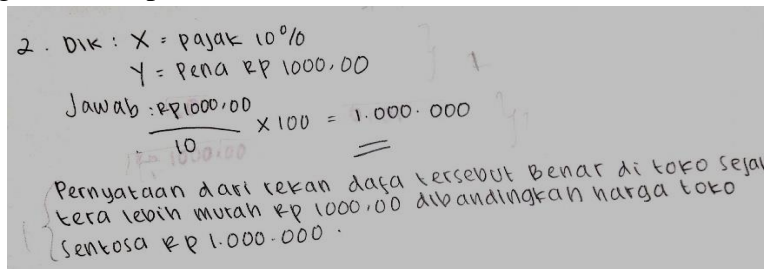 2. Dik : X = pajak 10%
Y = Pena Rp 1000,00
Jawab : Rp1000,00 / 10 × 100 = 1.000.000
Pernyataan dari rekan dafa tersebut Benar di toko sejah
tera lebih murah Rp 1000,00 dibandingkan harga toko
Sentosa Rp 1.000.000.